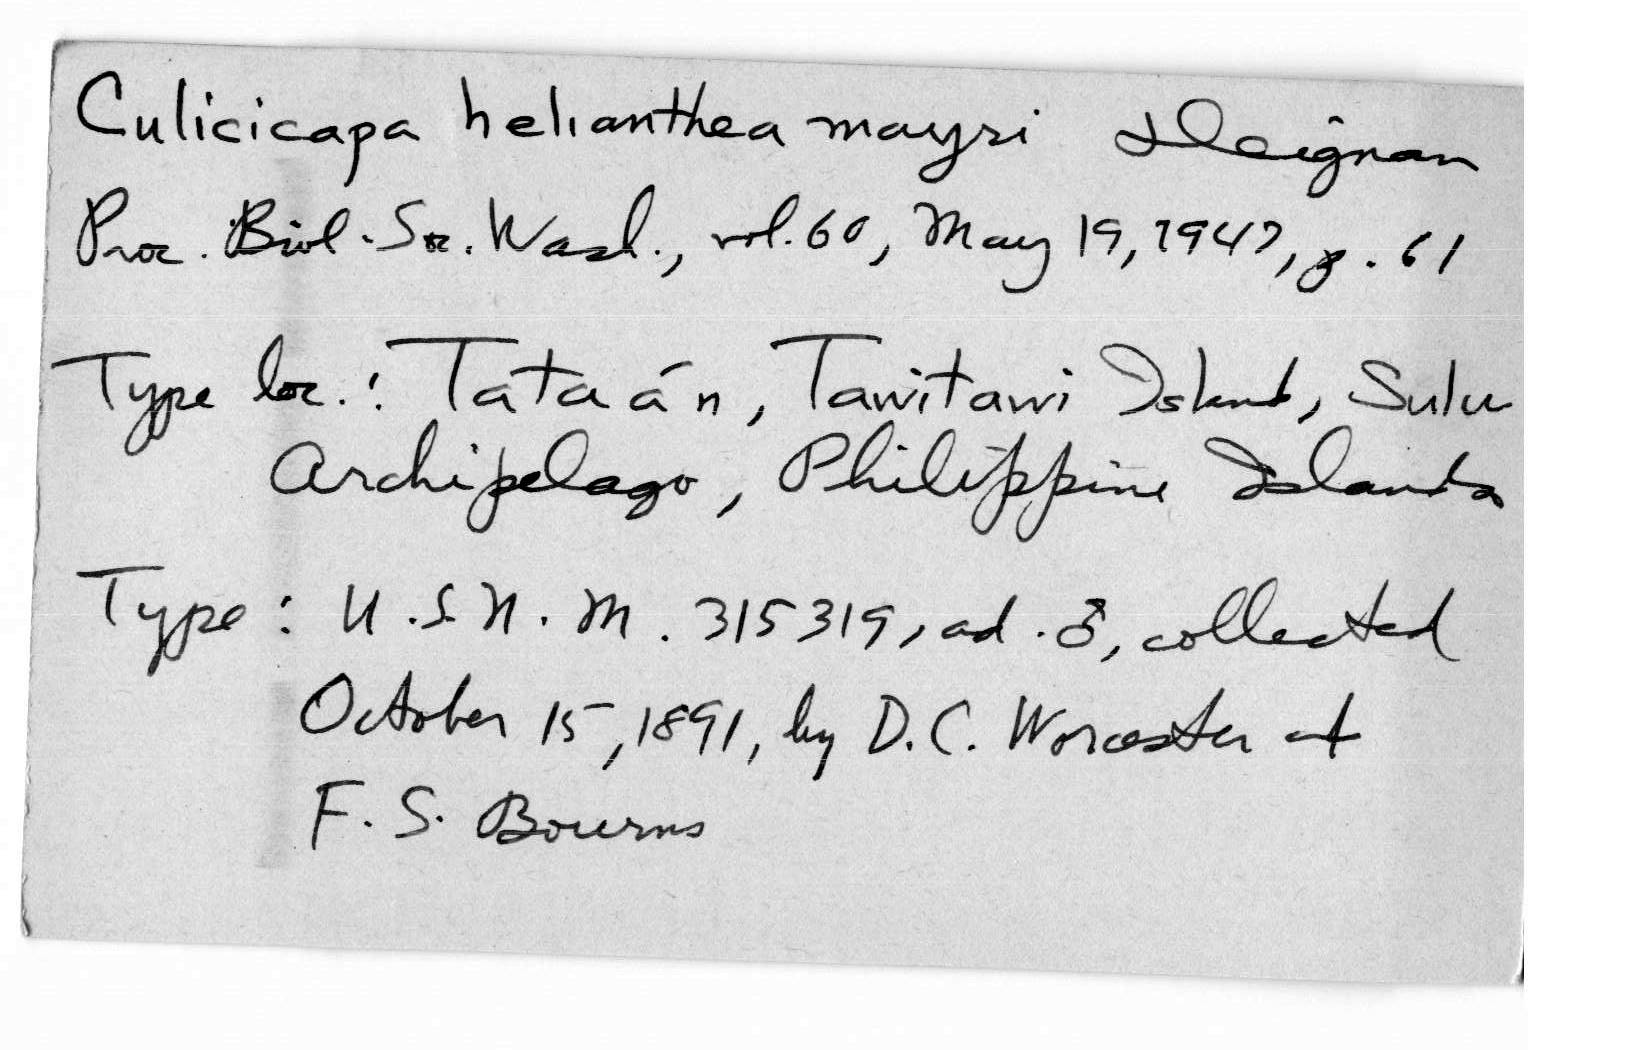 Culicicapa helianthea mayri Deignan
Proc. Biol. Soc. Wash., vol. 60, May 19, 1947, p. 61
Type loc.: Tataán, Tawitawi Island, Sulu
Archipelago, Philippine Islands
Type: U.S.N.M. 315319, ad. ♂, collected
October 15, 1891, by D.C. Worcester et
F. S. Bourns